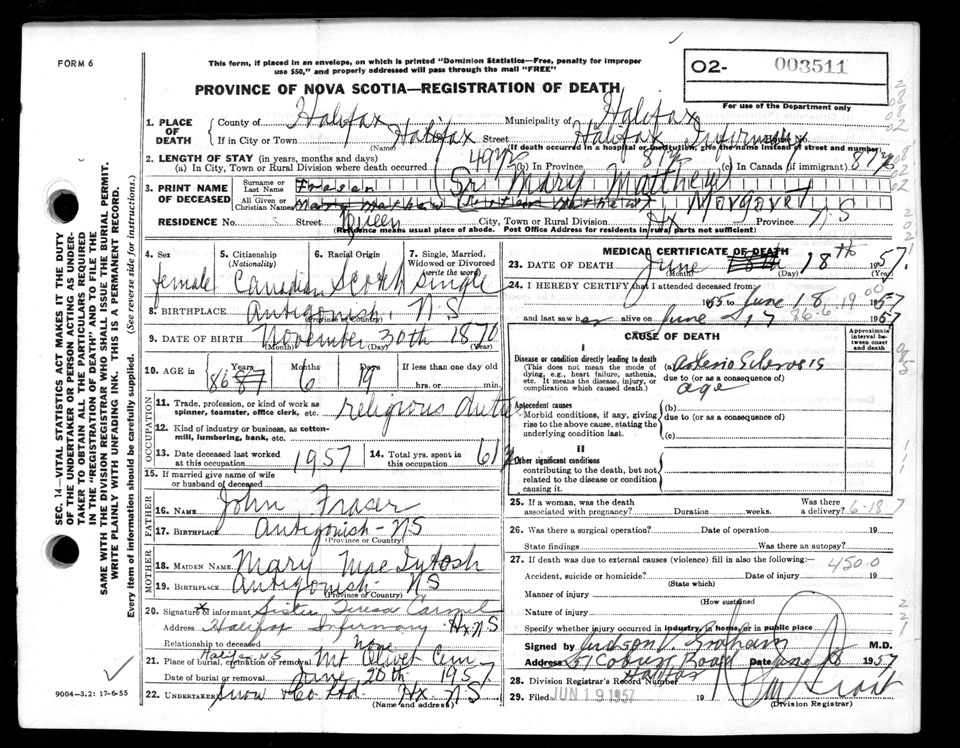 FORM 6
This form, if placed in an envelope, on which is printed "Dominion Statistics—Free, penalty for improper
use $50," and properly addressed will pass through the mail "FREE"
O2- 003511
For use of the Department only
PROVINCE OF NOVA SCOTIA—REGISTRATION OF DEATH
1. PLACE OF DEATH County of Halifax Municipality of Halifax
If in City or Town Halifax (Name) Street Halifax Infirmary House No.
(If death occurred in a hospital or institution, give the name instead of street and number)
2. LENGTH OF STAY (in years, months and days)
(a) In City, Town or Rural Division where death occurred 49 yrs (b) In Province 87 yrs (c) In Canada (if immigrant) 87 yrs
3. PRINT NAME OF DECEASED Surname or Last Name Fraser Sr Mary Matthew
All Given or Christian Names Mary Mathew Margaret
RESIDENCE No. Street Queen City, Town or Rural Division Hx Province N.S
(Residence means usual place of abode. Post Office Address for residents in rural parts not sufficient)
4. Sex female
5. Citizenship (Nationality) Canadian
6. Racial Origin Scotch
7. Single, Married, Widowed or Divorced (write the word) Single
8. BIRTHPLACE Antigonish N-S (Province or Country)
9. DATE OF BIRTH November 30th 1870 (Month) (Day) (Year)
10. AGE in Years 86 87 Months 6 Days 19 If less than one day old hrs. or min.
OCCUPATION
11. Trade, profession, or kind of work as spinner, teamster, office clerk, etc. religious duties
12. Kind of industry or business, as cotton-mill, lumbering, bank, etc.
13. Date deceased last worked at this occupation 1957
14. Total yrs. spent in this occupation 61 y
15. If married give name of wife or husband of deceased
FATHER
16. NAME John Fraser
17. BIRTHPLACE Antigonish - NS (Province or Country)
MOTHER
18. MAIDEN NAME Mary MacIntosh
19. BIRTHPLACE Antigonish - NS (Province or Country)
20. Signature of informant x Sister Teresa Carmel
Address Halifax Infirmary Hx N.S
Relationship to deceased None
21. Place of burial, cremation or removal Halifax N.S Mt Olivet Cem
Date of burial or removal June 20th 1957
22. Undertaker Snow & Co Ltd. Hx N S
(Name and address)
9004—3.2: 17-6-55
MEDICAL CERTIFICATE OF DEATH
23. DATE OF DEATH June 18th 1957 (Month) (Day) (Year)
24. I HEREBY CERTIFY that I attended deceased from:
1955 to June 18, 1957
and last saw her alive on June 1957
CAUSE OF DEATH
Approximate interval between onset and death
I
Disease or condition directly leading to death
(This does not mean the mode of dying, e.g., heart failure, asthenia, etc. It means the disease, injury, or complication which caused death.)
(a) Arterio Sclerosis
due to (or as a consequence of)
age
Antecedent causes
Morbid conditions, if any, giving rise to the above cause, stating the underlying condition last.
(b)
due to (or as a consequence of)
(c)
II
Other significant conditions
contributing to the death, but not related to the disease or condition causing it.
25. If a woman, was the death associated with pregnancy? Duration weeks. Was there a delivery? 6-18-7
26. Was there a surgical operation? Date of operation 19
State findings Was there an autopsy?
27. If death was due to external causes (violence) fill in also the following: 450.0
Accident, suicide or homicide? (State which) Date of injury 19
Manner of injury (How sustained)
Nature of injury
Specify whether injury occurred in industry, in home, or in public place
Signed by Judson V. Graham M.D.
Address 57 Coburg Road Halifax Date June 18 1957
28. Division Registrar's Record Number
29. Filed JUN 19 1957 19
(Division Registrar)
SEC. 14—VITAL STATISTICS ACT MAKES IT THE DUTY
OF THE UNDERTAKER OR PERSON ACTING AS UNDER-
TAKER TO OBTAIN ALL THE PARTICULARS REQUIRED
IN THE "REGISTRATION OF DEATH" AND TO FILE THE
SAME WITH THE DIVISION REGISTRAR WHO SHALL ISSUE THE BURIAL PERMIT.
WRITE PLAINLY WITH UNFADING INK. THIS IS A PERMANENT RECORD.
Every item of information should be carefully supplied. (See reverse side for instructions.)